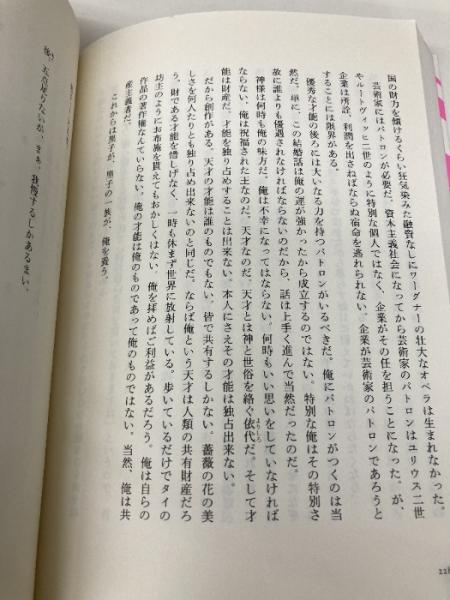 国の財力を傾けるくらい狂気染みた融資なしにワーグナーの壮大なオペラは生まれなかった。
芸術家にはパトロンが必要だ。資本主義社会になってから芸術家のパトロンはユリウス二世
やルートヴィッヒ二世のように特別な個人ではなく、企業がその任を担うことになった。が、
企業は所詮、利潤を出さねばならぬ宿命を逃れられない。企業が芸術家のパトロンであろうと
することには限界がある。
優秀な才能の後ろには大いなる力を持つパトロンがいるべきだ。俺にパトロンがつくのは当
然だ。単に、この結婚話は俺の運が強かったから成立するのではない。特別な俺はその特別さ
故に誰よりも優遇されなければならないのだから、話は上手く進んで当然だったのだ。
神様は何時も俺の味方だ。俺は不幸になってはならない。何時もいい思いをしていなければ
ならない。俺は祝福された王なのだ。天才なのだ。天才とは神と世俗を繙ぐ依代だ。そして才
よりしろ
能は財産だ。才能を独り占めすることは出来ない。本人にさえその才能は独占出来ない。
だから創作がある。天才の才能は誰のものでもない。皆で共有するしかない。薔薇の花の美
しさを何人たりとも独り占め出来ないのと同じだ。ならば俺という天才は人類の共有財産だろ
う。財である才能を惜しげなく、一時も休まず世界に放射している。歩いているだけでタイの
坊主のようにお布施を貰えてもおかしくはない。俺を拝めばご利益があるだろう。俺は自らの
作品の著作権なんていらない。俺の才能は俺のものであって俺のものではない。当然、俺は共
産主義者だ。
これからは里子が、里子の一族が、俺を養う。
足りないが、まあ、我慢するしかあるまい。